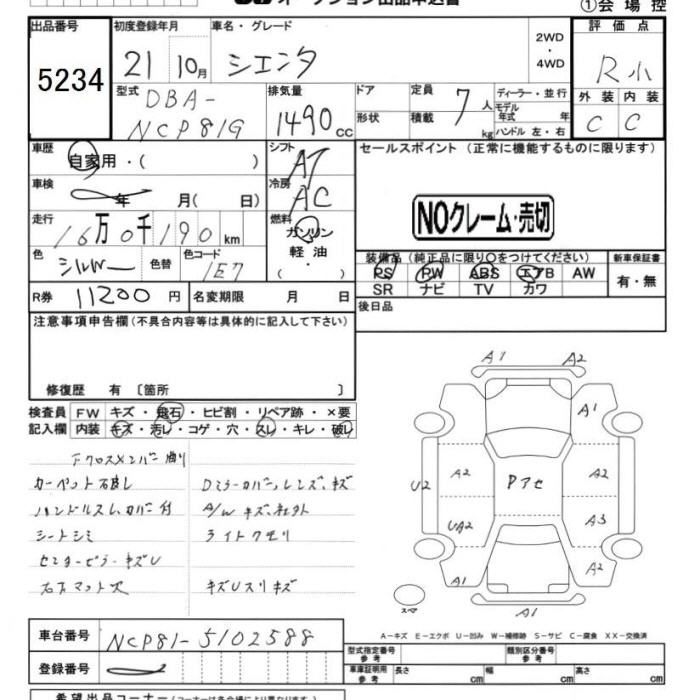 オークション出品申込書
①会場控
出品番号
5234
初度登録年月
21 10月
車名・グレード
シエンタ
2WD
・
4WD
評価点
R小
型式
DBA-
NCP81G
排気量
1490 cc
ドア
形状
定員
積載
7人
kg
ディーラー・並行
モデル
年式 年
ハンドル 左・右
外装 内装
C C
車歴
自家用・( )
シフト
AT
セールスポイント (正常に機能するものに限ります)
車検
年 月( 日)
冷房
AC
NOクレーム・売切
走行
16万0千190 km
燃料
ガソリン
軽油
・( )
色
シルバー
色替
色コード
1E7
装備品 (純正品に限り○をつけてください)
PS PW ABS エアB AW
SR ナビ TV カワ
新車保証書
有・無
R券 11200 円
名変期限 月 日
後日品
注意事項申告欄(不具合内容等は具体的に記入して下さい)
修復歴 有 〔箇所 〕
検査員
記入欄
FW キズ・飛石・ヒビ割・リペア跡・×要
内装 キズ・汚レ・コゲ・穴・スレ・キレ・破レ
Fクロスメンバー曲り
カーペット破レ
Dミラーカバー,レンズ,キズ
ハンドルスレ,カバー付
A/Wキズ,社外
シートシミ
ライトクモリ
センターピラーキズU
右下マット欠
キズUスリキズ
A1 A2
A1
A2 A2
U2
Pアセ
UA2 A3
A2
A1
A1
スペア
A-キズ E-エクボ U-凹み W-補修跡 S-サビ C-腐食 XX-交換済
車台番号 NCP81-5102588
登録番号
型式指定番号
参考
類別区分番号
参考
車庫証明用
参考
長さ cm 幅 cm 高さ cm
希望出品コーナー(コーナーは各会場により異なります)